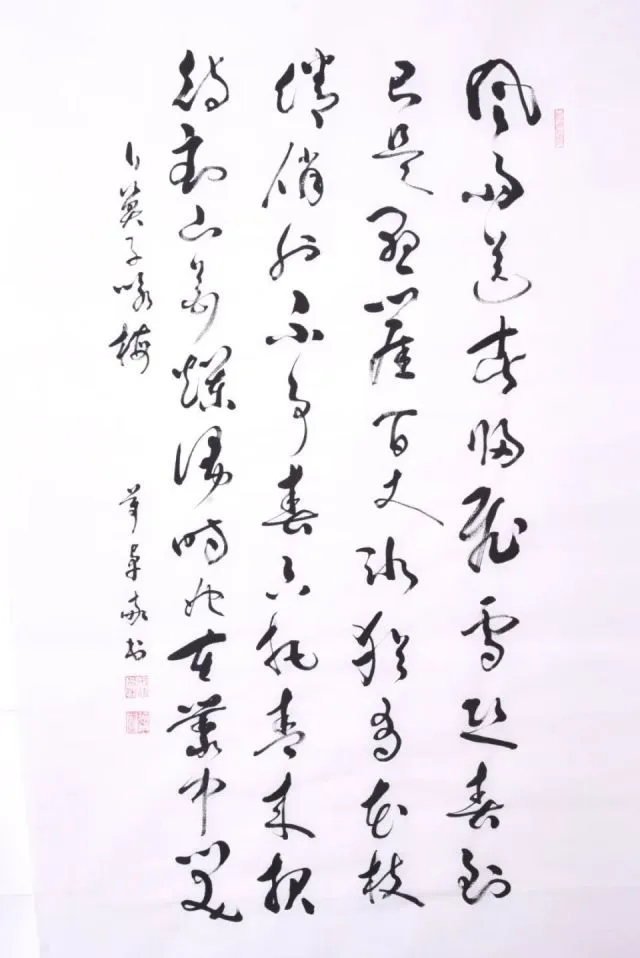 風雨送春歸飛雪迎春到
已是懸崖百丈冰猶有花枝
俏俏也不爭春只把春來報
待到山花爛漫時她在叢中笑
卜算子咏梅
书